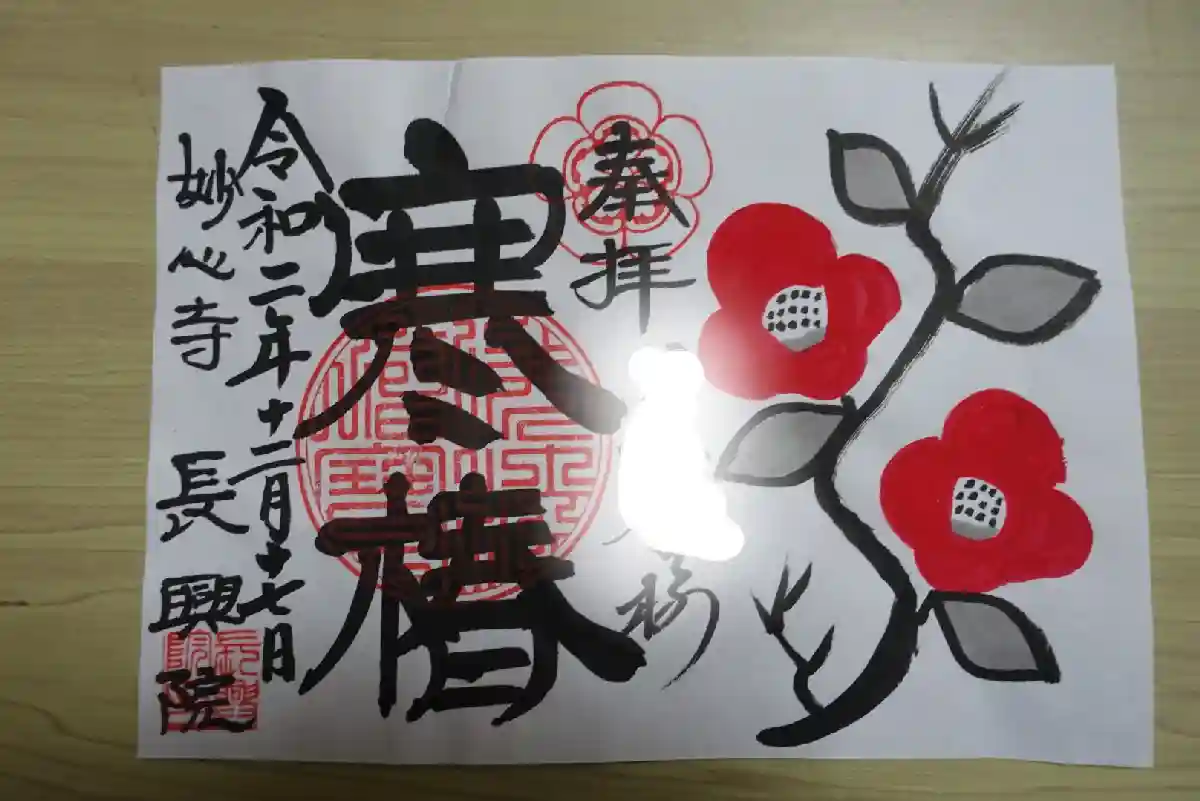 奉拝
様
寒椿
令和二年十二月十七日
妙心寺 長興院